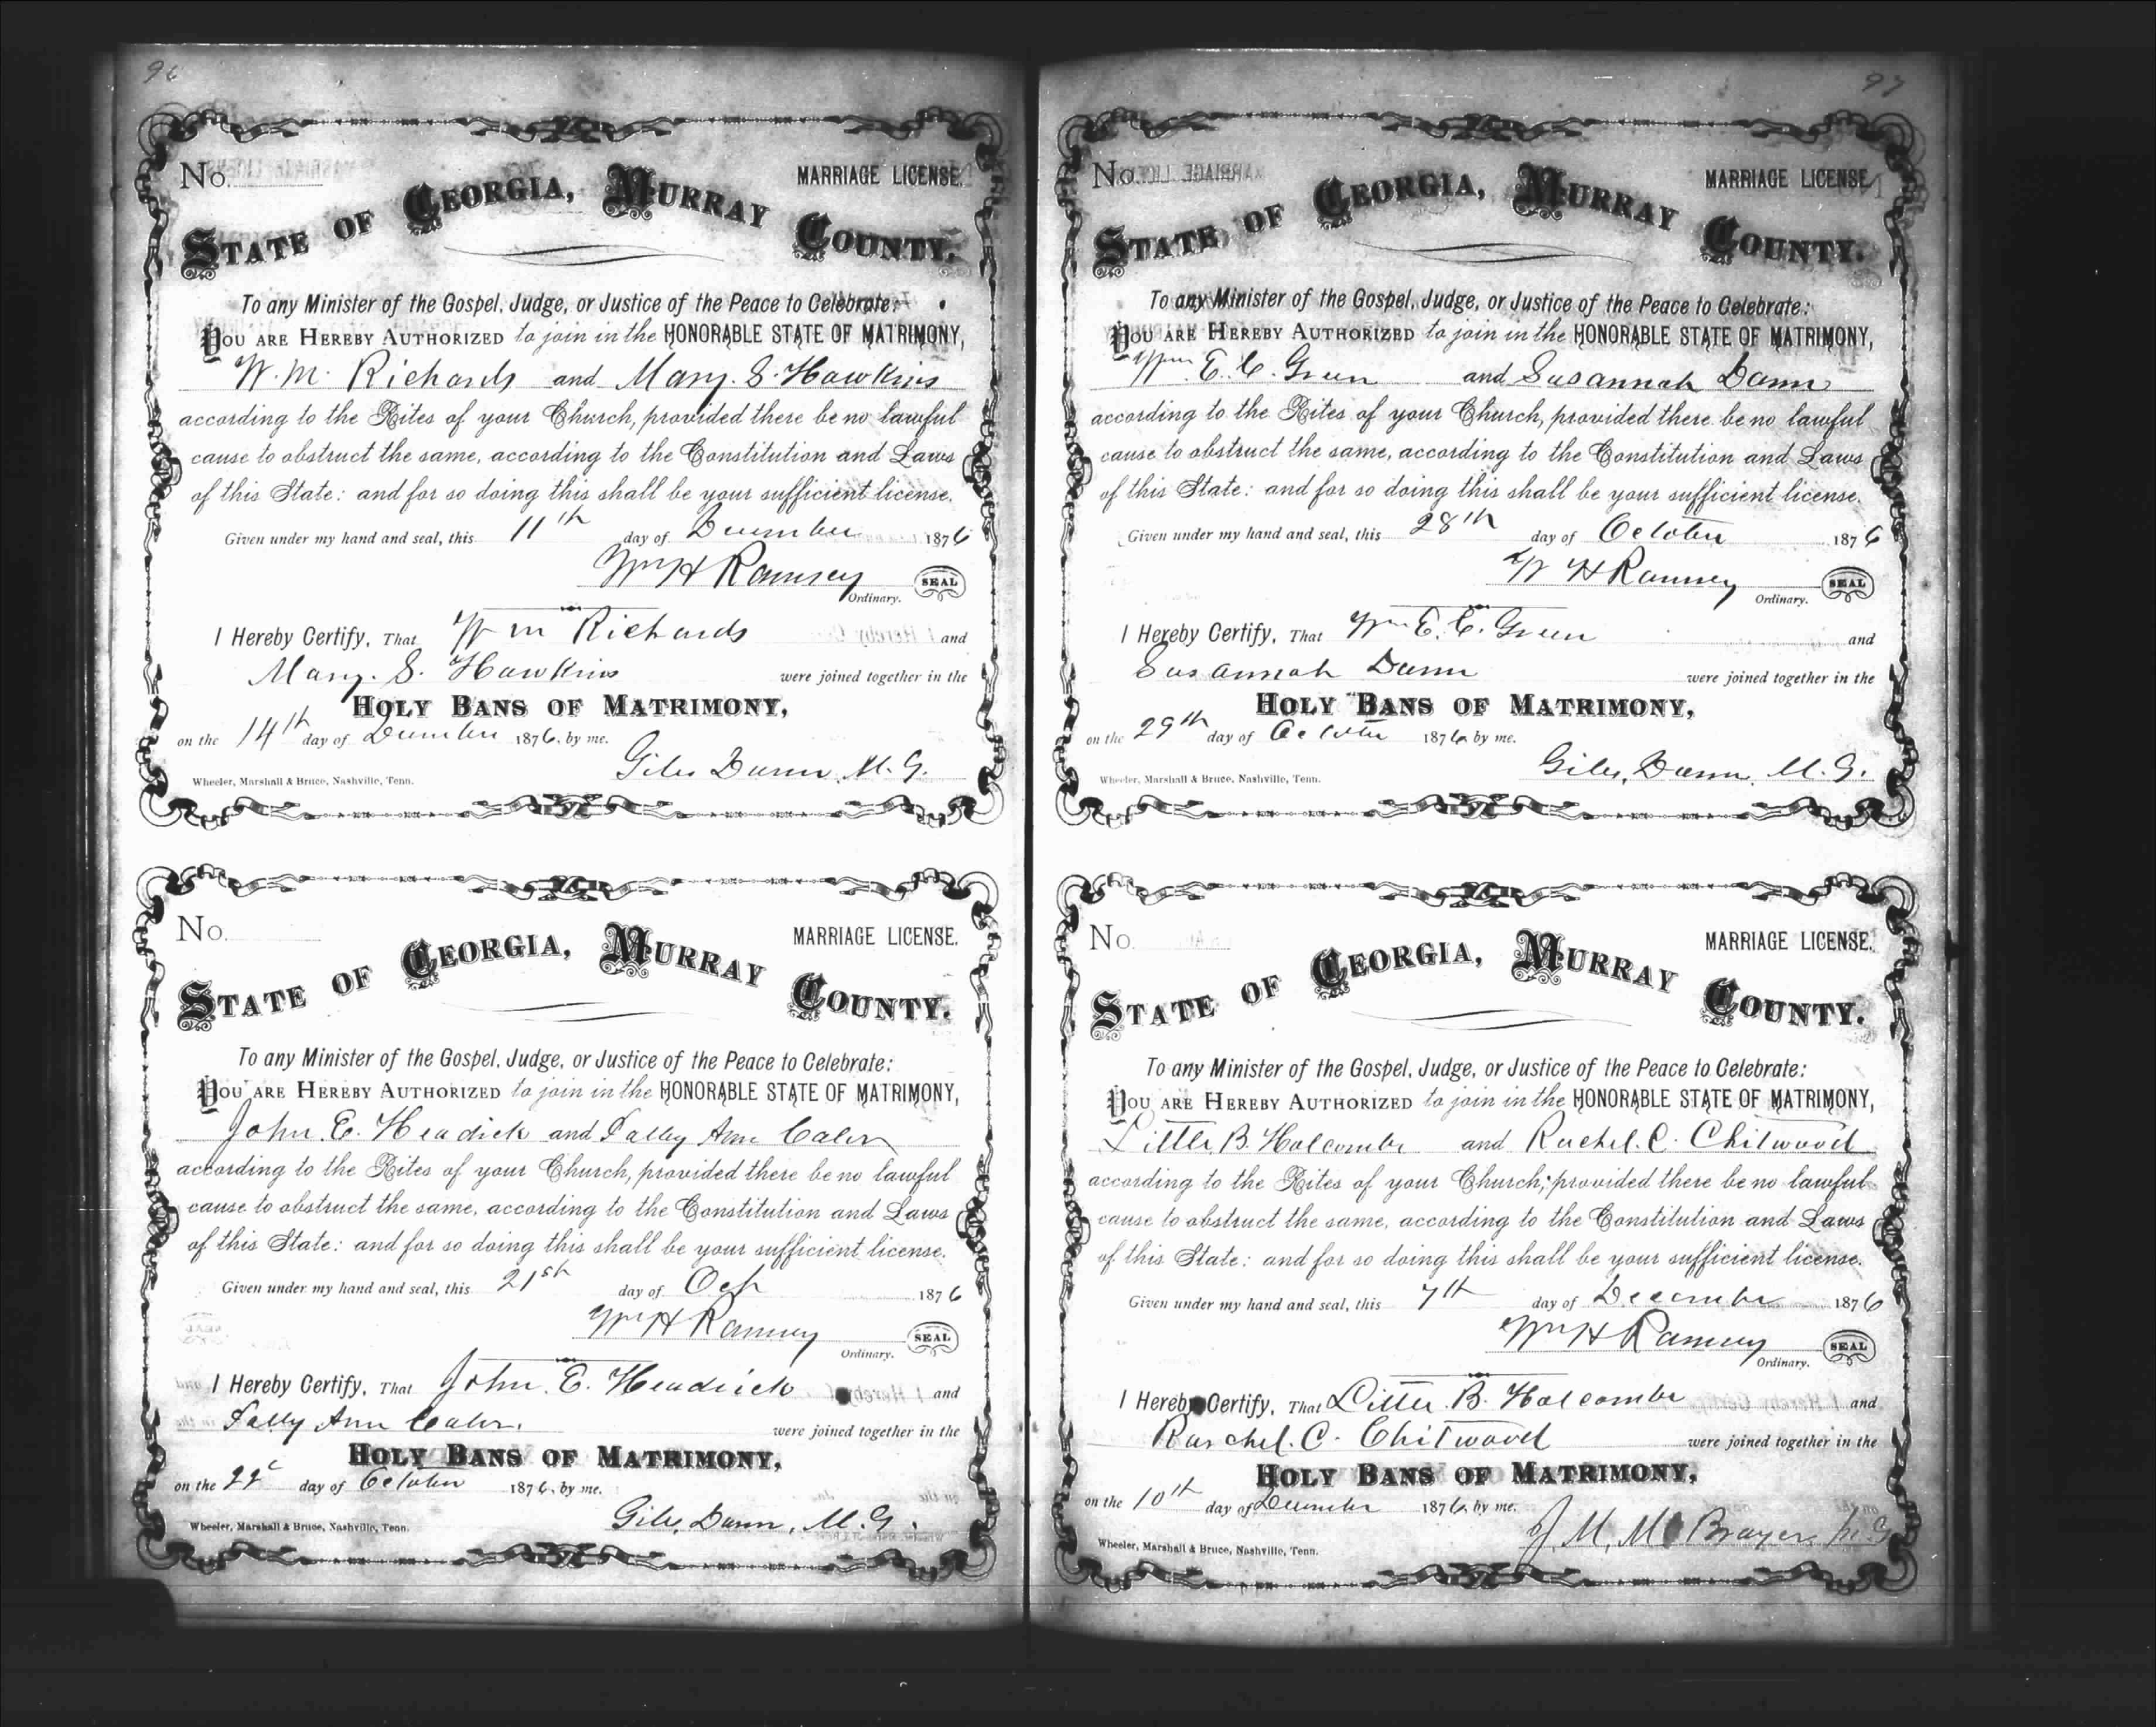 96
No. MARRIAGE LICENSE.
STATE OF GEORGIA, MURRAY COUNTY.
To any Minister of the Gospel, Judge, or Justice of the Peace to Celebrate:
YOU ARE HEREBY AUTHORIZED to join in the HONORABLE STATE OF MATRIMONY,
W. M. Richards and Mary. S. Hawkins
according to the Rites of your Church, provided there be no lawful
cause to obstruct the same, according to the Constitution and Laws
of this State: and for so doing this shall be your sufficient license.
Given under my hand and seal, this 11th day of December 1876
Wm H Ramsey SEAL
Ordinary.
I Hereby Certify, That W m Richards and
Mary. S. Hawkins were joined together in the
HOLY BANS OF MATRIMONY,
on the 14th day of December 1876, by me.
Giles Dunn, M. G.
Wheeler, Marshall & Bruce, Nashville, Tenn.
No. MARRIAGE LICENSE.
STATE OF GEORGIA, MURRAY COUNTY.
To any Minister of the Gospel, Judge, or Justice of the Peace to Celebrate:
YOU ARE HEREBY AUTHORIZED to join in the HONORABLE STATE OF MATRIMONY,
John. E. Headick and Sally Ann
according to the Rites of your Church, provided there be no lawful
cause to obstruct the same, according to the Constitution and Laws
of this State: and for so doing this shall be your sufficient license.
Given under my hand and seal, this 21st day of Oct 1876
Wm H Ramsey SEAL
Ordinary.
I Hereby Certify, That John. E. Headrick and
Sally Ann were joined together in the
HOLY BANS OF MATRIMONY,
on the 22d day of October 1876, by me.
Giles Dunn, M. G.
Wheeler, Marshall & Bruce, Nashville, Tenn.
97
No. MARRIAGE LICENSE.
STATE OF GEORGIA, MURRAY COUNTY.
To any Minister of the Gospel, Judge, or Justice of the Peace to Celebrate:
YOU ARE HEREBY AUTHORIZED to join in the HONORABLE STATE OF MATRIMONY,
Wm. E. C. Green and Susannah Dunn
according to the Rites of your Church, provided there be no lawful
cause to obstruct the same, according to the Constitution and Laws
of this State: and for so doing this shall be your sufficient license.
Given under my hand and seal, this 28th day of October 1876
W H Ramsey SEAL
Ordinary.
I Hereby Certify, That Wm E. C. Green and
Susannah Dunn were joined together in the
HOLY BANS OF MATRIMONY,
on the 29th day of October 1876, by me.
Giles Dunn, M. G.
Wheeler, Marshall & Bruce, Nashville, Tenn.
No. MARRIAGE LICENSE.
STATE OF GEORGIA, MURRAY COUNTY.
To any Minister of the Gospel, Judge, or Justice of the Peace to Celebrate:
YOU ARE HEREBY AUTHORIZED to join in the HONORABLE STATE OF MATRIMONY,
B. Holcombe and Rachel. C. Chitwood
according to the Rites of your Church, provided there be no lawful
cause to obstruct the same, according to the Constitution and Laws
of this State: and for so doing this shall be your sufficient license.
Given under my hand and seal, this 7th day of December 1876
Wm H Ramsey SEAL
Ordinary.
I Hereby Certify, That B. Holcombe and
Rarchel. C. Chitwood were joined together in the
HOLY BANS OF MATRIMONY,
on the 10th day of December 1876, by me.
J M, McBrayer, M G
Wheeler, Marshall & Bruce, Nashville, Tenn.